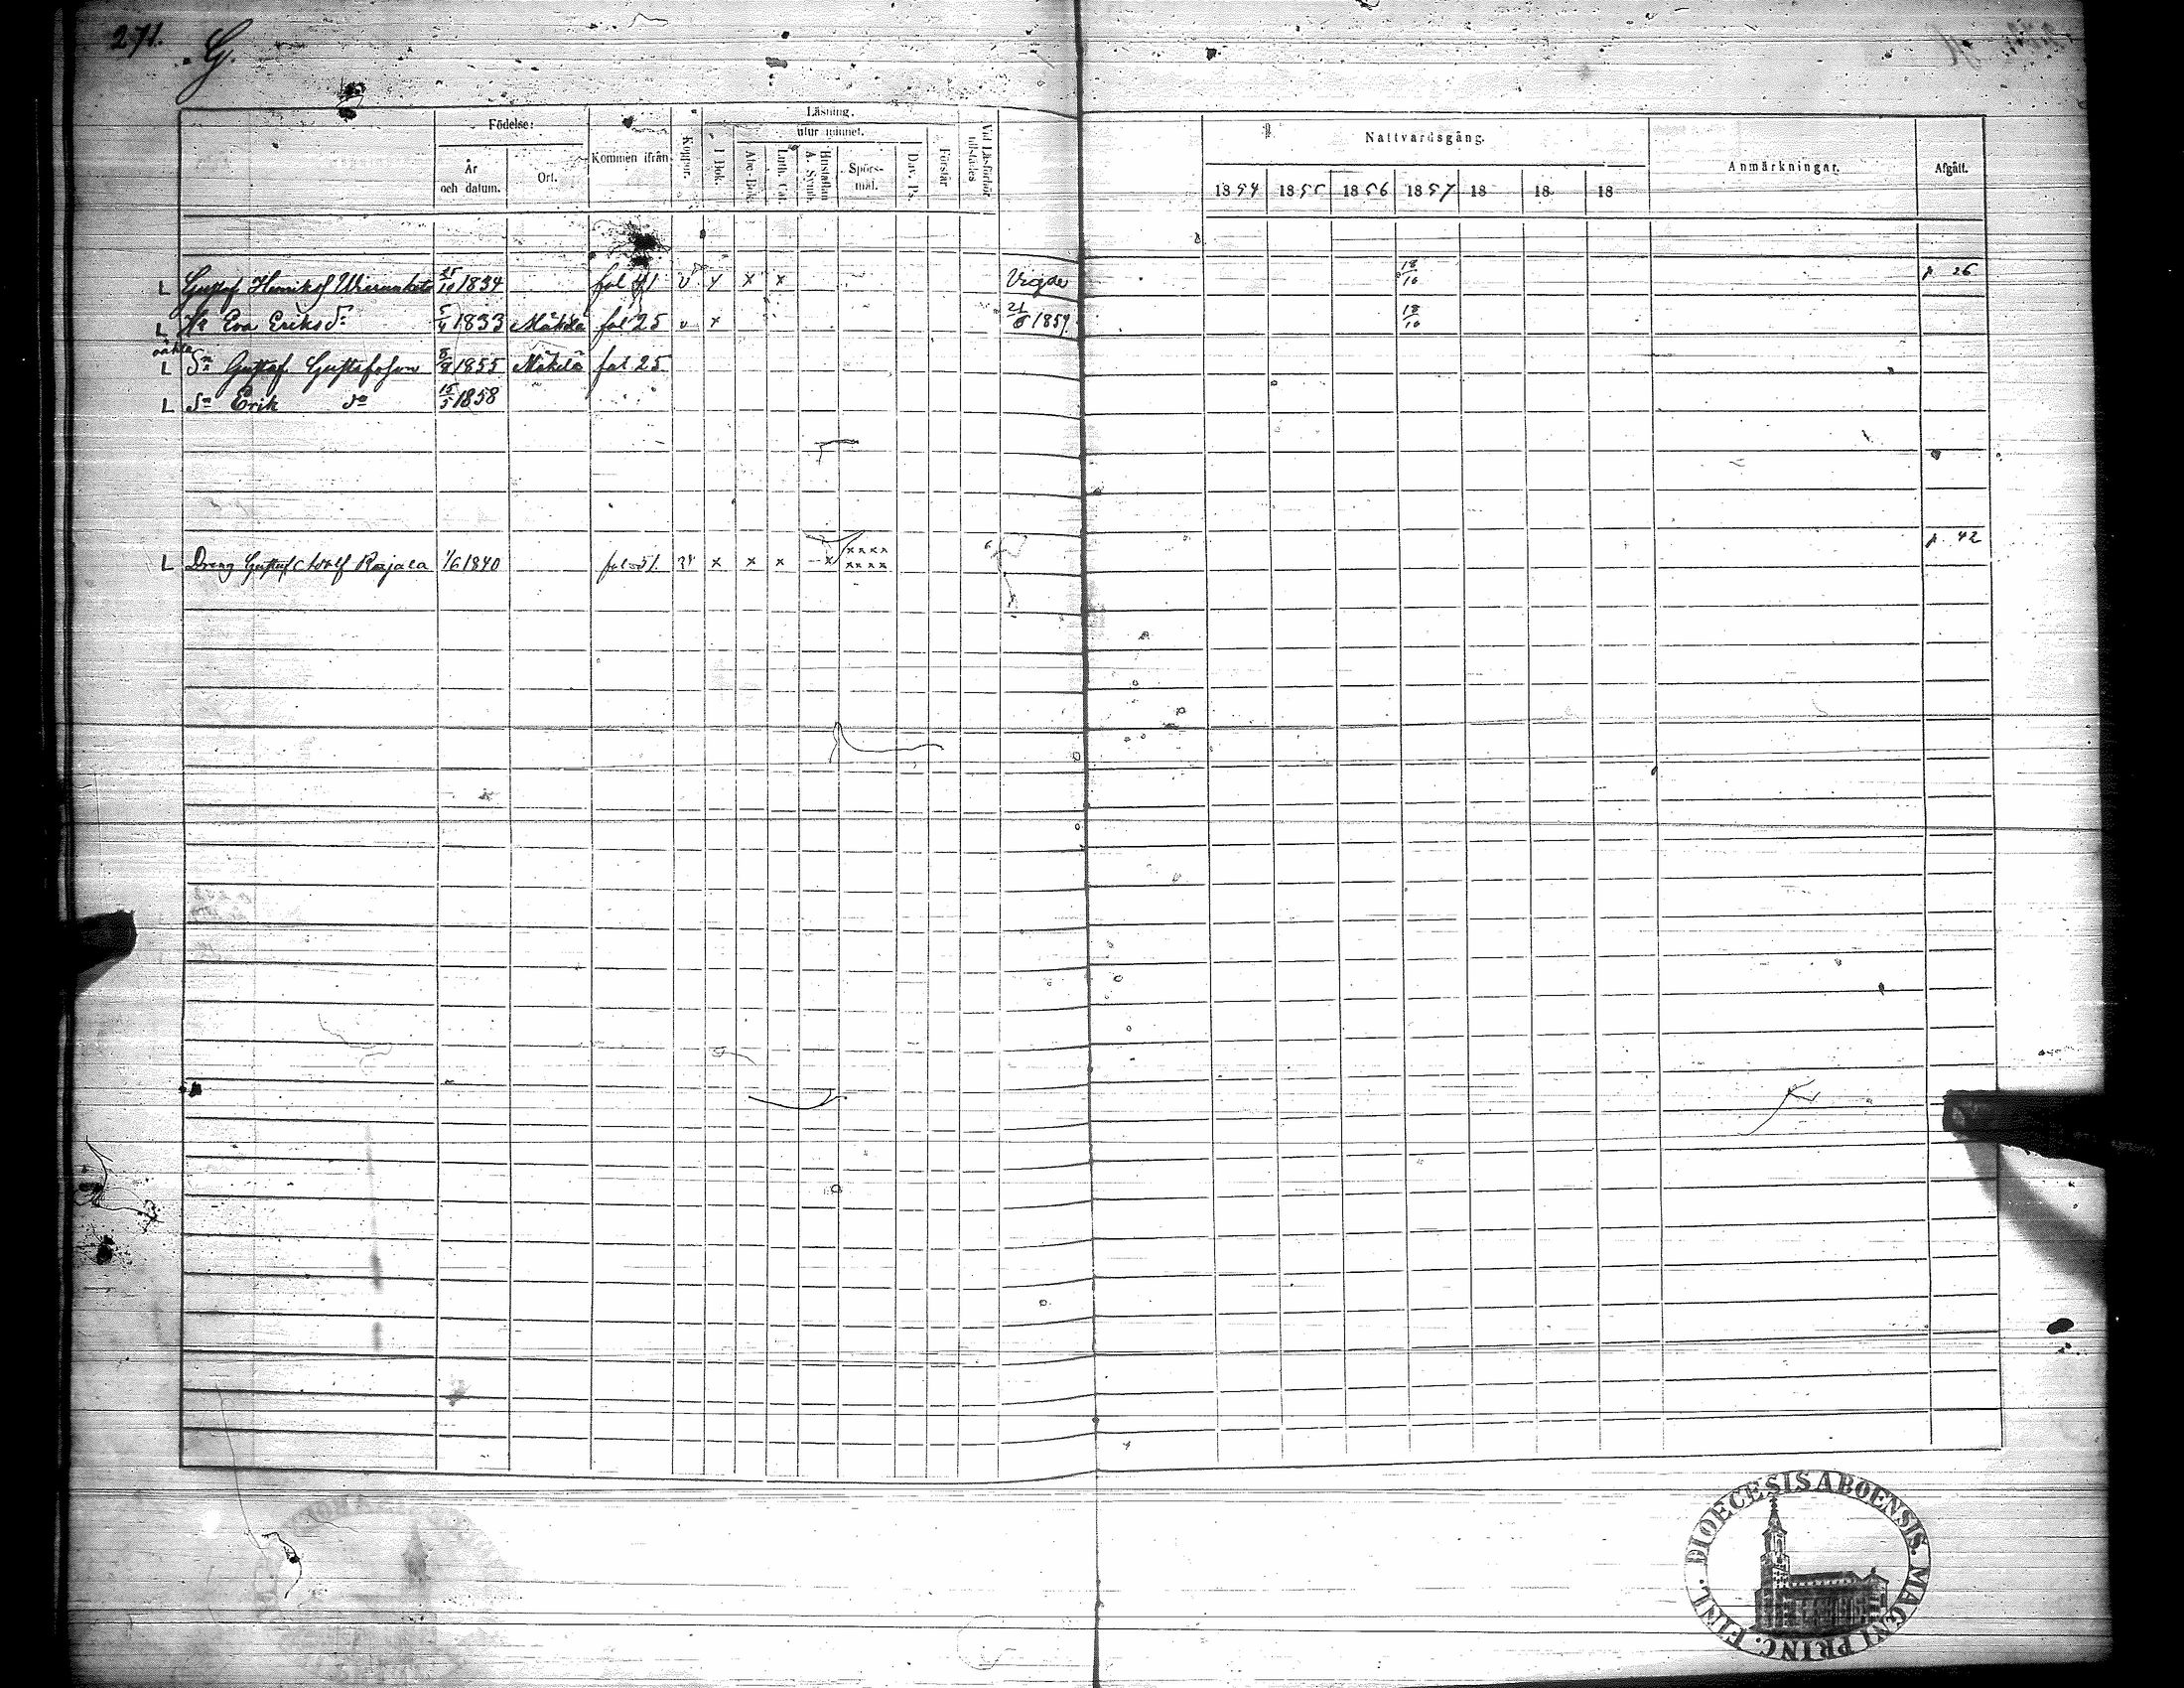 271. G.
Födelse:
År och datum.
Ort.
Kommen ifrån
Koppor.
Läsning.
I Bok.
utur minnet.
Abc-Bok.
Luth. Cat.
Hustaflan A. Symb.
Spörs-mål.
Dav. Ps.
Förstår
Vid Läsförhör tillstädes
Nattvardsgång.
1854 1855 1856 1857 18 18 18
Anmärkningar.
Afgått.
L Gustaf Henriksf 25/10 1834 fol v x x x Vigde 18/10 p. 26
L Eva Eriksd:r 5/4 1833 Mäkelä fol 25 v x 21/6 1857. 18/10
oäkta
L Sn Gustaf Gustafsson 8/8 1855 Mäkelä fol 25
L Sn Erik do 15/5 1858
L Dreng Gustaf Adolf Rajala 1/6 1840 x x x x xxxx xxxx p. 42
DIOECESIS ABOENSIS. MAGNI PRINC. FINL.